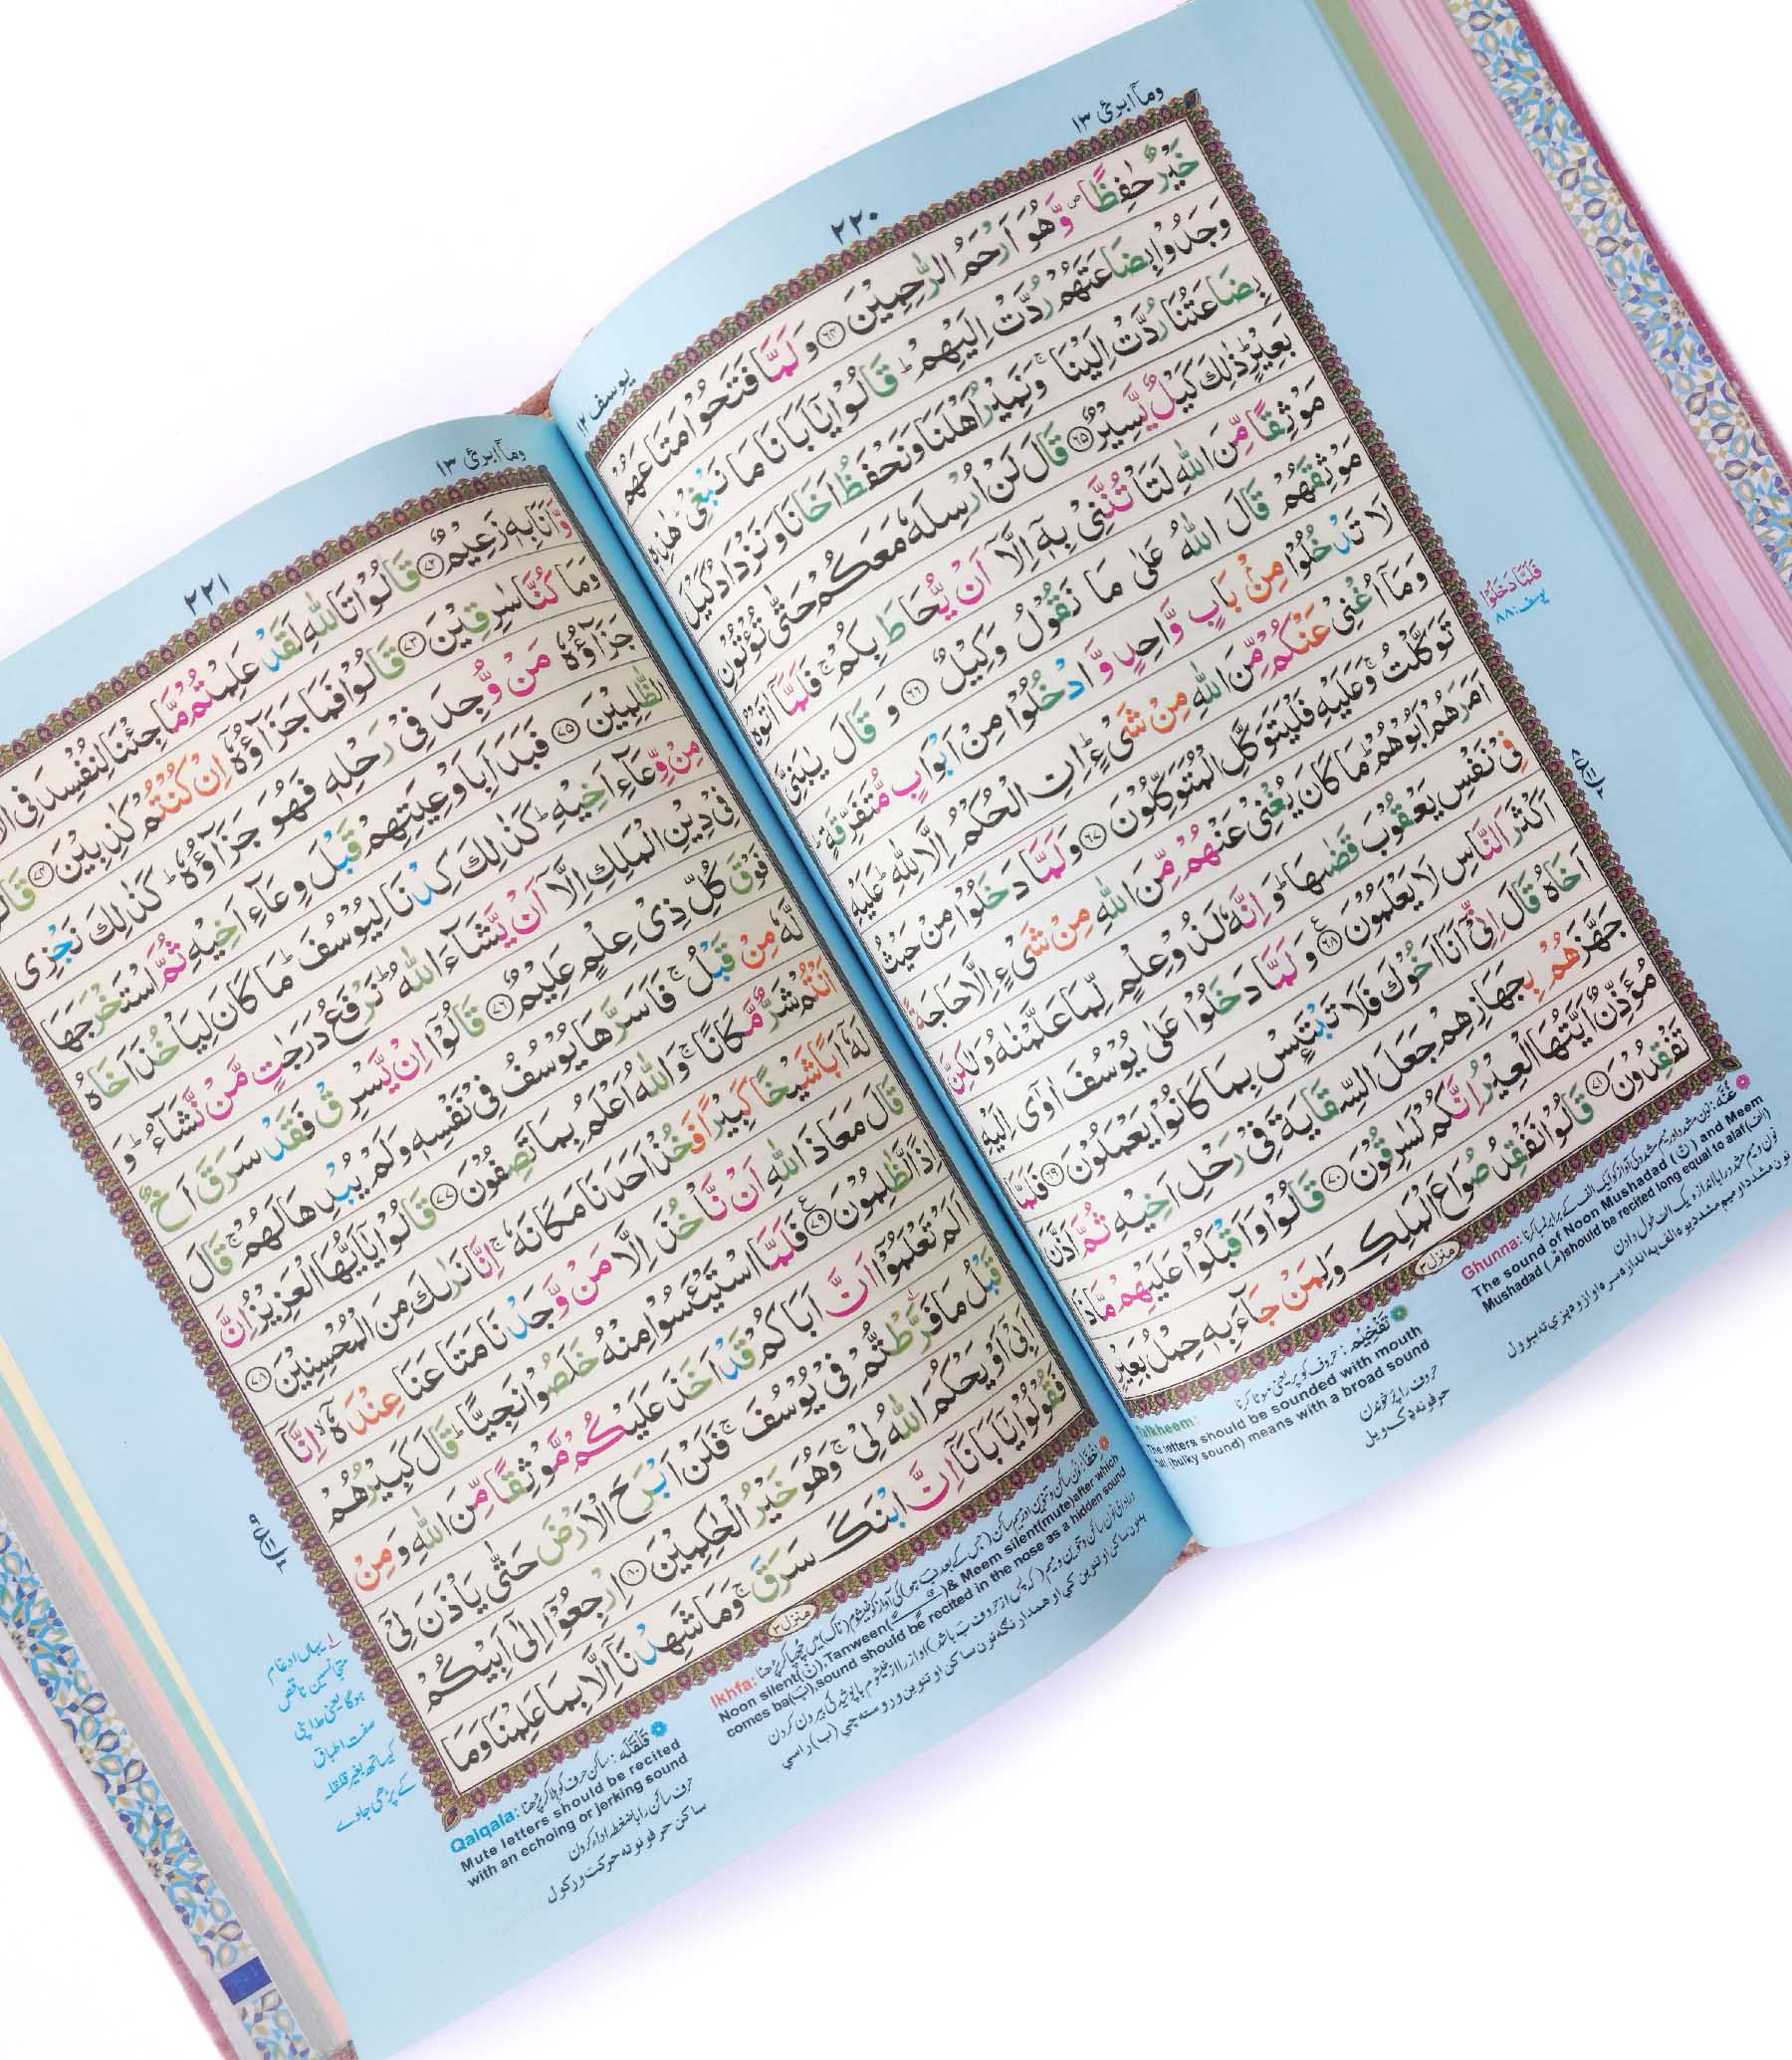 وما ابرئ ۱۳
۲۲۰
یوسف ۱۲
خَيْرٌ حٰفِظًا ۪ وَّهُوَ اَرْحَمُ الرّٰحِمِيْنَ ﴿۶۴﴾ وَ لَمَّا فَتَحُوْا مَتَاعَهُمْ
وَجَدُوْا بِضَاعَتَهُمْ رُدَّتْ اِلَيْهِمْ ؕ قَالُوْا يٰۤاَبَانَا مَا نَبْغِيْ ؕ هٰذِهٖ
بِضَاعَتُنَا رُدَّتْ اِلَيْنَا ۚ وَنَمِيْرُ اَهْلَنَا وَنَحْفَظُ اَخَانَا وَنَزْدَادُ كَيْلَ
بَعِيْرٍ ؕ ذٰلِكَ كَيْلٌ يَّسِيْرٌ ﴿۶۵﴾ قَالَ لَنْ اُرْسِلَهٗ مَعَكُمْ حَتّٰى تُؤْتُوْنِ
مَوْثِقًا مِّنَ اللّٰهِ لَتَاْتُنَّنِيْ بِهٖۤ اِلَّاۤ اَنْ يُّحَاطَ بِكُمْ ۚ فَلَمَّاۤ اٰتَوْهُ
مَوْثِقَهُمْ قَالَ اللّٰهُ عَلٰى مَا نَقُوْلُ وَكِيْلٌ ﴿۶۶﴾ وَ قَالَ يٰبَنِيَّ
لَا تَدْخُلُوْا مِنْۢ بَابٍ وَّاحِدٍ وَّ ادْخُلُوْا مِنْ اَبْوَابٍ مُّتَفَرِّقَةٍ ؕ
وَمَاۤ اُغْنِيْ عَنْكُمْ مِّنَ اللّٰهِ مِنْ شَيْءٍ ؕ اِنِ الْحُكْمُ اِلَّا لِلّٰهِ ؕ عَلَيْهِ
تَوَكَّلْتُ ۚ وَعَلَيْهِ فَلْيَتَوَكَّلِ الْمُتَوَكِّلُوْنَ ﴿۶۷﴾ وَ لَمَّا دَخَلُوْا مِنْ حَيْثُ
اَمَرَهُمْ اَبُوْهُمْ ؕ مَا كَانَ يُغْنِيْ عَنْهُمْ مِّنَ اللّٰهِ مِنْ شَيْءٍ اِلَّا حَاجَةً
فِيْ نَفْسِ يَعْقُوْبَ قَضٰىهَا ؕ وَ اِنَّهٗ لَذُوْ عِلْمٍ لِّمَا عَلَّمْنٰهُ وَ لٰكِنَّ
اَكْثَرَ النَّاسِ لَا يَعْلَمُوْنَ ﴿۶۸﴾ وَ لَمَّا دَخَلُوْا عَلٰى يُوْسُفَ اٰوٰۤى اِلَيْهِ
اَخَاهُ قَالَ اِنِّيْۤ اَنَا اَخُوْكَ فَلَا تَبْتَئِسْ بِمَا كَانُوْا يَعْمَلُوْنَ ﴿۶۹﴾ فَلَمَّا
جَهَّزَهُمْ بِجَهَازِهِمْ جَعَلَ السِّقَايَةَ فِيْ رَحْلِ اَخِيْهِ ثُمَّ اَذَّنَ
مُؤَذِّنٌ اَيَّتُهَا الْعِيْرُ اِنَّكُمْ لَسٰرِقُوْنَ ﴿۷۰﴾ قَالُوْا وَ اَقْبَلُوْا عَلَيْهِمْ مَّاذَا
تَفْقِدُوْنَ ﴿۷۱﴾ قَالُوْا نَفْقِدُ صُوَاعَ الْمَلِكِ وَلِمَنْ جَآءَ بِهٖ حِمْلُ بَعِيْرٍ
منزل ۳
فَلَمَّا دَخَلُوْا
یوسف: ۸۸
Ghunna:
The sound of Noon Mushadad (نّ) and Meem
Mushadad (مّ) should be recited long equal to alaf (الف)
Tafkheem: تَفْخِیْم: حروف کو پُر یعنی موٹا کرنا
The letters should be sounded with mouth
full (bulky sound) means with a broad sound
حروف را پُر خوندن
وما ابرئ ۱۳
۲۲۱
وَّاَنَا بِهٖ زَعِيْمٌ ﴿۷۲﴾ قَالُوْا تَاللّٰهِ لَقَدْ عَلِمْتُمْ مَّا جِئْنَا لِنُفْسِدَ فِي
وَمَا كُنَّا سٰرِقِيْنَ ﴿۷۳﴾ قَالُوْا فَمَا جَزَآؤُهٗۤ اِنْ كُنْتُمْ كٰذِبِيْنَ ﴿۷۴﴾
جَزَآؤُهٗ مَنْ وُّجِدَ فِيْ رَحْلِهٖ فَهُوَ جَزَآؤُهٗ ؕ كَذٰلِكَ نَجْزِي
الظّٰلِمِيْنَ ﴿۷۵﴾ فَبَدَاَ بِاَوْعِيَتِهِمْ قَبْلَ وِعَآءِ اَخِيْهِ ثُمَّ اسْتَخْرَجَهَا
مِنْ وِّعَآءِ اَخِيْهِ ؕ كَذٰلِكَ كِدْنَا لِيُوْسُفَ ؕ مَا كَانَ لِيَاْخُذَ اَخَاهُ
فِيْ دِيْنِ الْمَلِكِ اِلَّاۤ اَنْ يَّشَآءَ اللّٰهُ ؕ نَرْفَعُ دَرَجٰتٍ مَّنْ نَّشَآءُ ؕ وَ
فَوْقَ كُلِّ ذِيْ عِلْمٍ عَلِيْمٌ ﴿۷۶﴾ قَالُوْۤا اِنْ يَّسْرِقْ فَقَدْ سَرَقَ اَخٌ
لَّهٗ مِنْ قَبْلُ ۚ فَاَسَرَّهَا يُوْسُفُ فِيْ نَفْسِهٖ وَلَمْ يُبْدِهَا لَهُمْ ۚ قَالَ
اَنْتُمْ شَرٌّ مَّكَانًا ۚ وَاللّٰهُ اَعْلَمُ بِمَا تَصِفُوْنَ ﴿۷۷﴾ قَالُوْا يٰۤاَيُّهَا الْعَزِيْزُ اِنَّ
لَهٗۤ اَبًا شَيْخًا كَبِيْرًا فَخُذْ اَحَدَنَا مَكَانَهٗ ۚ اِنَّا نَرٰىكَ مِنَ الْمُحْسِنِيْنَ ﴿۷۸﴾
قَالَ مَعَاذَ اللّٰهِ اَنْ نَّاْخُذَ اِلَّا مَنْ وَّجَدْنَا مَتَاعَنَا عِنْدَهٗۤ ۙ اِنَّاۤ
اِذًا لَّظٰلِمُوْنَ ﴿۷۹﴾ فَلَمَّا اسْتَيْئَسُوْا مِنْهُ خَلَصُوْا نَجِيًّا ؕ قَالَ كَبِيْرُهُمْ
اَلَمْ تَعْلَمُوْۤا اَنَّ اَبَاكُمْ قَدْ اَخَذَ عَلَيْكُمْ مَّوْثِقًا مِّنَ اللّٰهِ وَ مِنْ
قَبْلُ مَا فَرَّطْتُّمْ فِيْ يُوْسُفَ ۚ فَلَنْ اَبْرَحَ الْاَرْضَ حَتّٰى يَاْذَنَ لِيْۤ
اَبِيْۤ اَوْ يَحْكُمَ اللّٰهُ لِيْ ۚ وَهُوَ خَيْرُ الْحٰكِمِيْنَ ﴿۸۰﴾ اِرْجِعُوْۤا اِلٰۤى اَبِيْكُمْ
فَقُوْلُوْا يٰۤاَبَانَاۤ اِنَّ ابْنَكَ سَرَقَ ۚ وَمَا شَهِدْنَاۤ اِلَّا بِمَا عَلِمْنَا وَمَا
منزل ۳
یہاں ادغام
Ikhfa:
Noon silent(نْ), Tanween & Meem silent(mute) after which
comes ba(ب), sound should be recited in the nose as a hidden sound
Qalqala: قَلْقَلَه: ساکن حرف کو ہلا کر پڑھنا
Mute letters should be recited
with an echoing or jerking sound